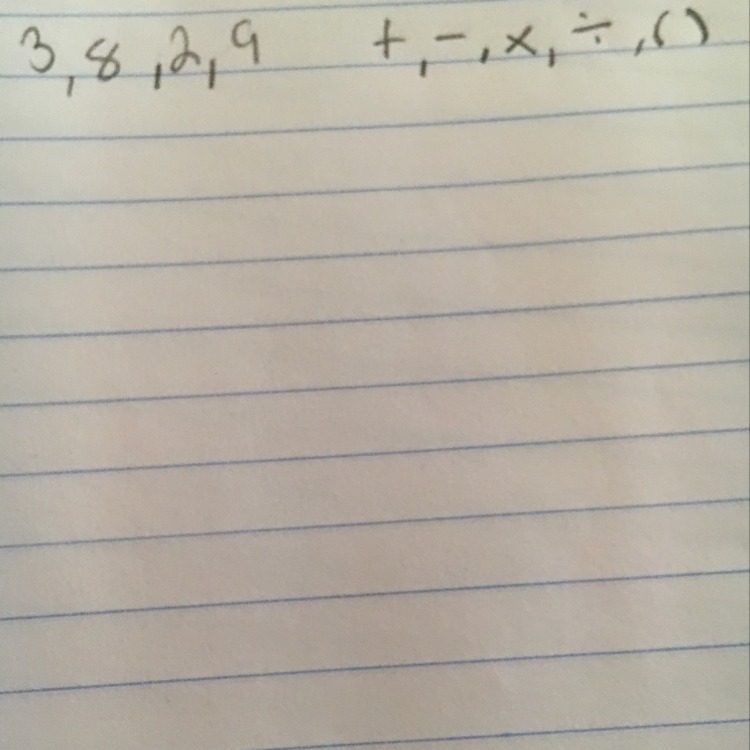 3, 8, 2, 9 +, -, x, ÷, ()